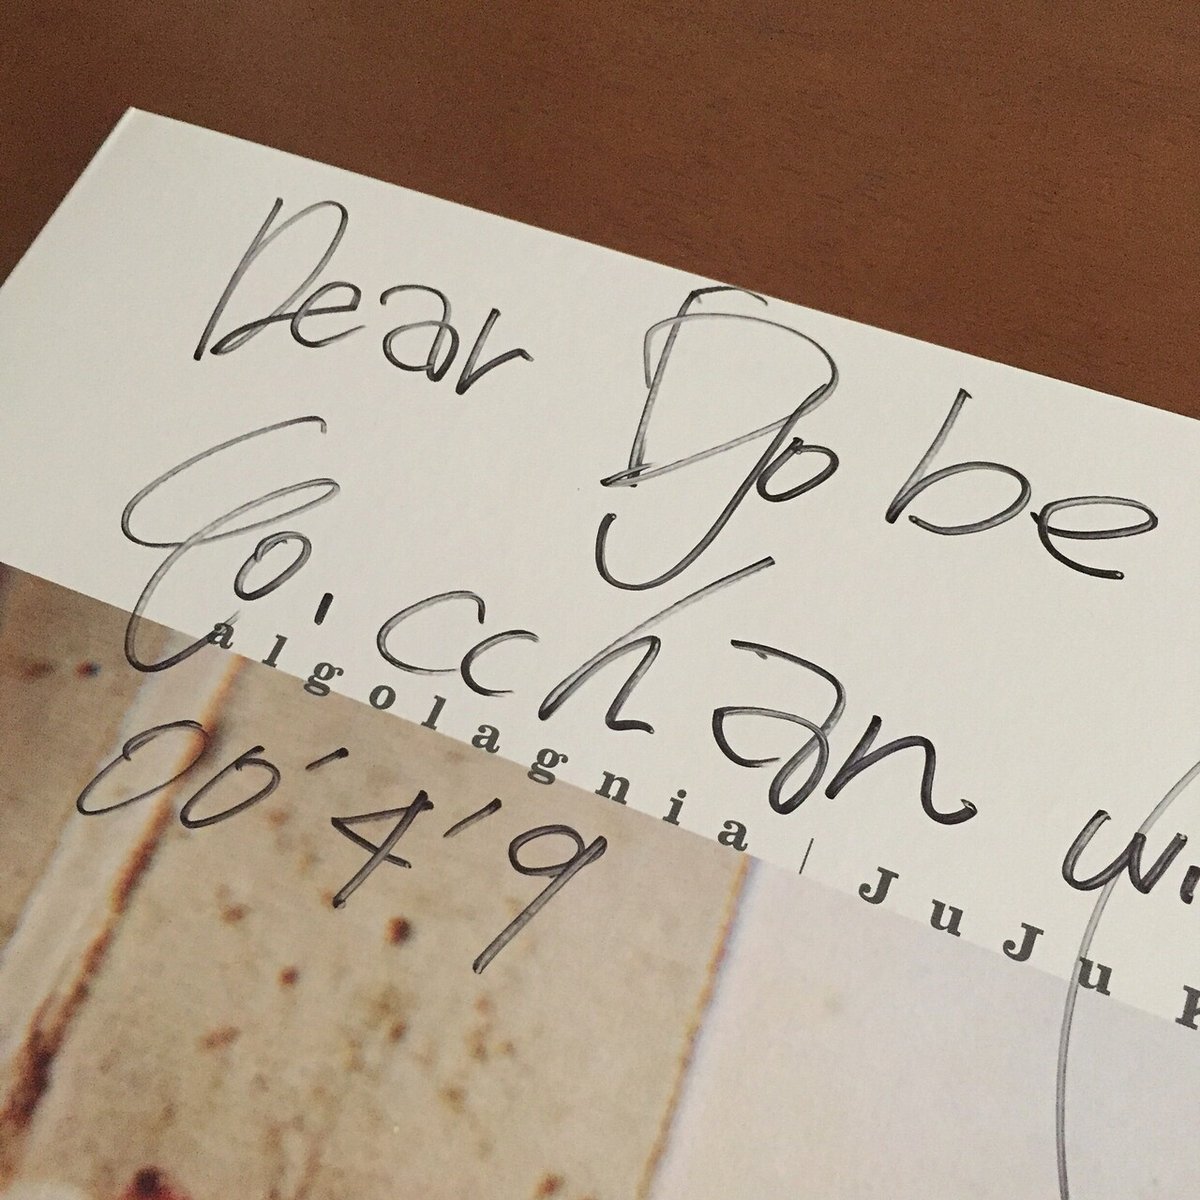 Dear Dobe
Co.cchan wi
algolagnia | JuJu
00'4'9